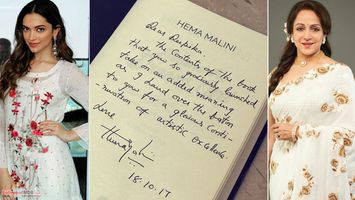 HEMA MALINI
Dear Deepika,
The Contents of the book
that you so graciously launched
takes on an added meaning
as I hand over the baton
to you for a glorious conti-
nuation of artistic excellence.
Love
Hemaji
18.10.17